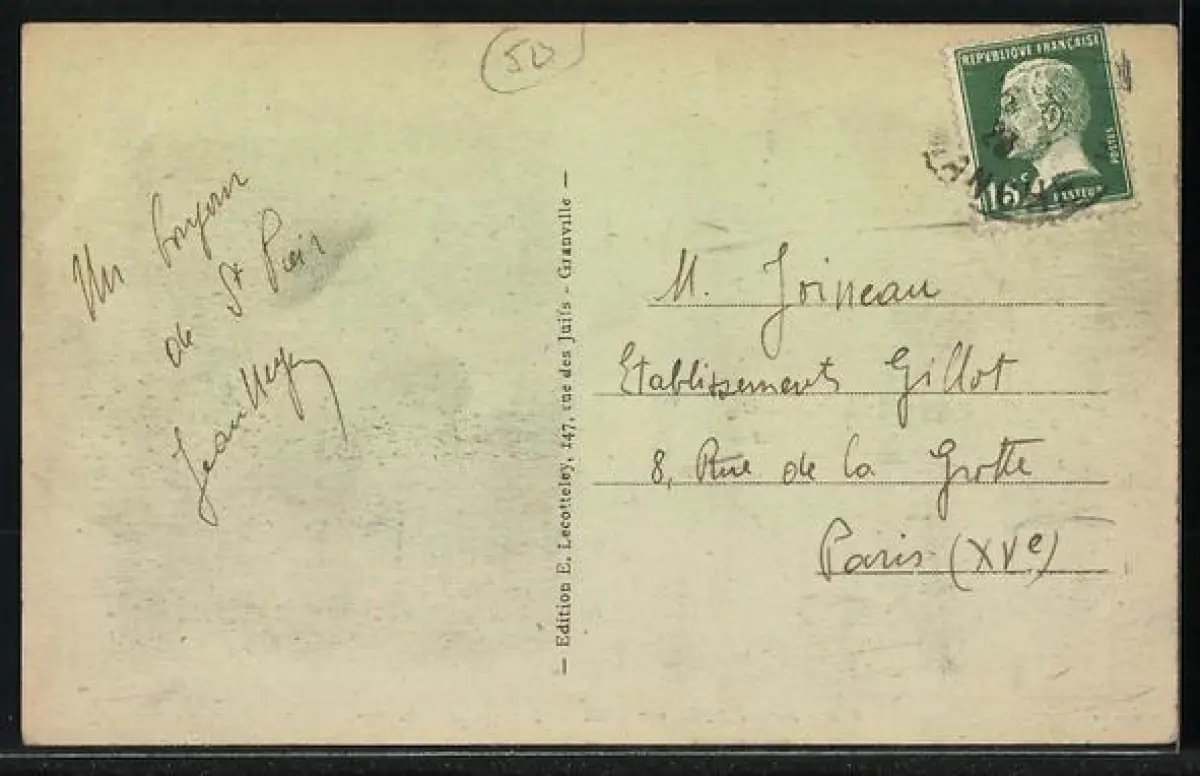 50
Un bonjour
de St Pair
Jean
— Edition E. Lecotteley, 147, rue des Juifs - Granville —
REPUBLIQUE FRANÇAISE
POSTES
15c
PASTEUR
M. Joineau
Etablissements Gillot
8, Rue de la Grotte
Paris (XVe)